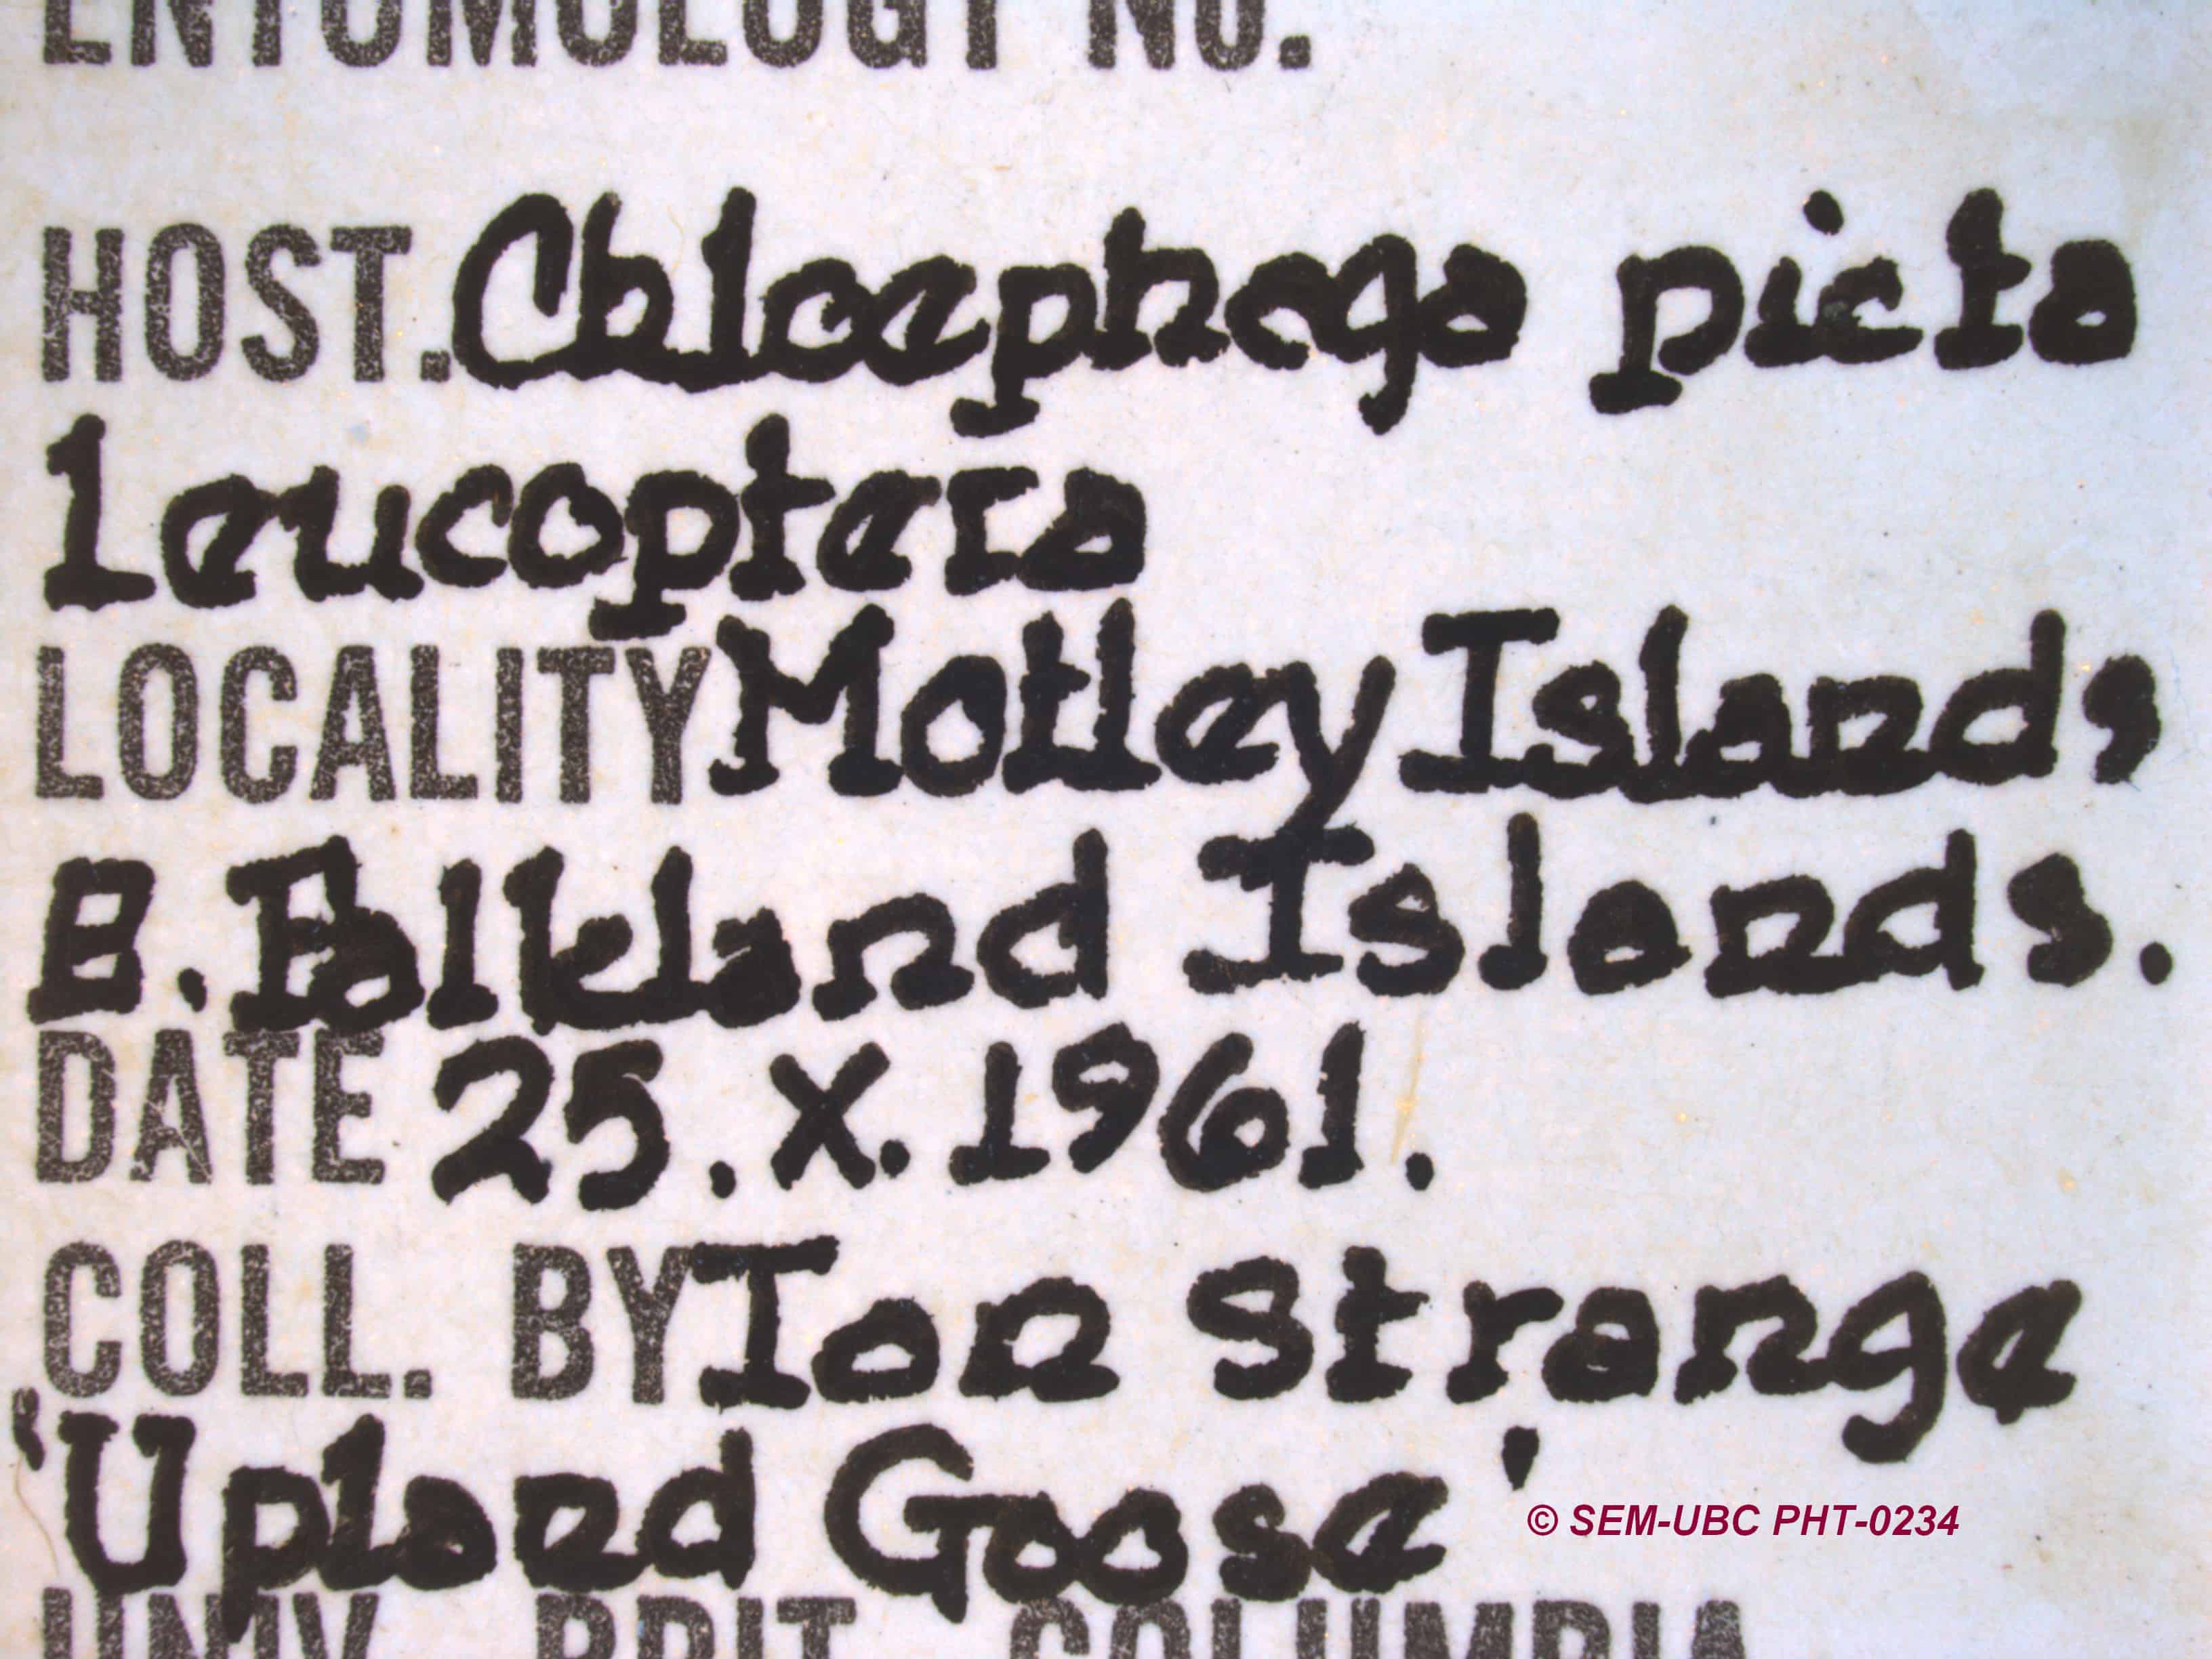 ENTOMOLOGY NO.
HOST. Chloephaga picta
leucoptera
LOCALITY Motley Islands
E. Falkland Islands.
DATE 25.X.1961.
COLL. BY Ian Strange
'Upland Goose'
© SEM-UBC PHT-0234
UNIV. BRIT. COLUMBIA